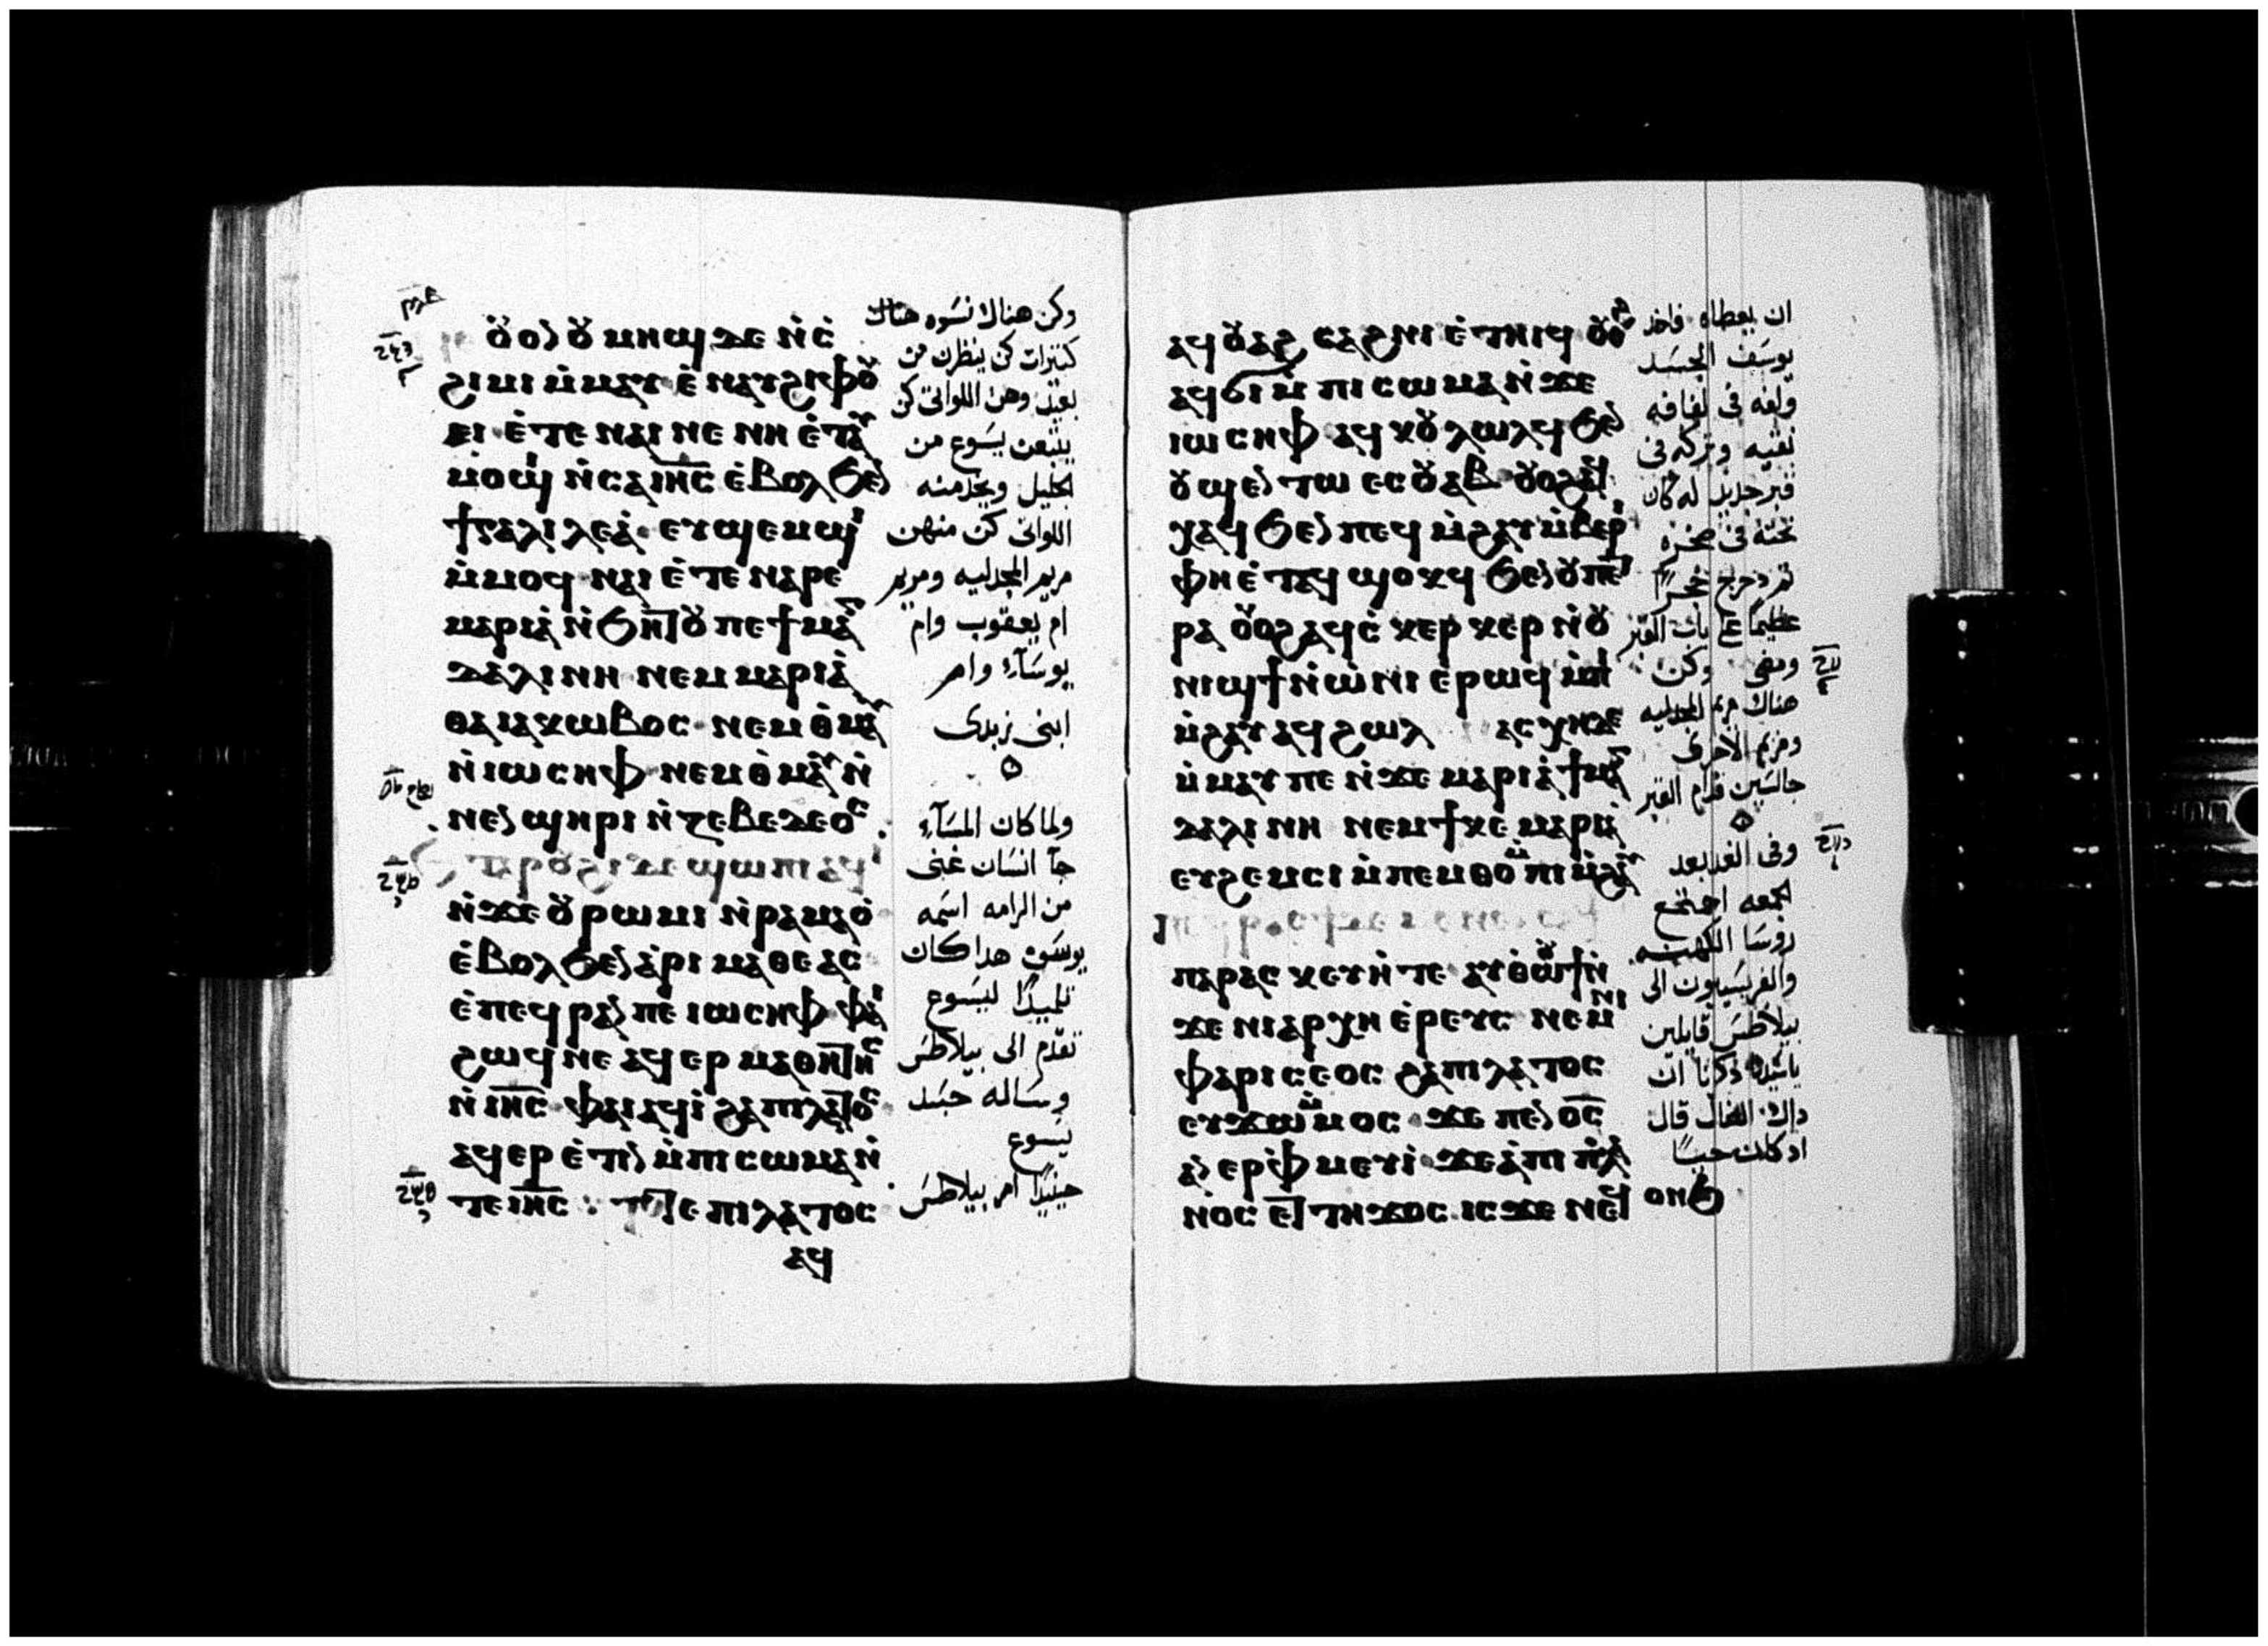 ⲟ̀ⲩⲟⲛ ⲟⲩⲙⲏϣ ⲇⲉ ⲛ̀ⲥ̀
ϩⲓⲙⲓ ⲙ̀ⲙⲁⲩ ⲉ̀ⲛⲁⲩϩⲓⲫⲟⲩ
ⲉⲓ ⲉ̀ⲧⲉ ⲛⲁⲓ ⲛⲉ ⲛⲏ ⲉ̀ⲧⲁⲩ
ⲙⲟϣⲓ ⲛ̀ⲥⲁ ⲓⲏ̅ⲥ̅ ⲉ̀ⲃⲟⲗϧⲉⲛ
ϯⲅⲁⲗⲓⲗⲉⲁ̀ · ⲉⲩϣⲉⲙϣⲓ
ⲙ̀ⲙⲟϥ · ⲛⲁⲓ ⲉ̀ⲧⲉ ⲛⲁⲣⲉ
ⲙⲁⲣⲓⲁ̀ ⲛ̀ϧⲏⲧⲟⲩ ⲡⲉ ϯⲙⲁⲅ
ⲇⲁⲗⲓⲛⲏ · ⲛⲉⲙ ⲙⲁⲣⲓⲁ̀
ⲑⲁ ⲓⲁⲕⲱⲃⲟⲥ · ⲛⲉⲙ ⲑ̀ⲙⲁⲩ
ⲛ̀ⲓⲱⲥⲏⲫ · ⲛⲉⲙ ⲑ̀ⲙⲁⲩ ⲛ̀
ⲛⲉⲛϣⲏⲣⲓ ⲛ̀ⲍⲉⲃⲉⲇⲉⲟⲥ
ⲣⲟⲩϩⲓ ⲇⲉ ϣⲱⲡⲓ ⲁϥⲓ̀
ⲛ̀ϫⲉ ⲟⲩⲣⲱⲙⲓ ⲛ̀ⲣⲁⲙⲁⲟ̀
ⲉ̀ⲃⲟⲗϧⲉⲛ ⲁ̀ⲣⲓⲙⲁⲑⲉⲁⲥ
ⲉ̀ⲡⲉϥⲣⲁⲛ ⲡⲉ ⲓⲱⲥⲏⲫ · ⲫⲁⲓ
ϩⲱϥ ⲛⲉ ⲁϥⲉⲣ ⲙⲁⲑⲏⲧⲏⲥ
ⲛ̀ ⲓⲏ̅ⲥ̅ · ⲫⲁⲓ ⲁϥⲓ̀ ϩⲁ ⲡⲓⲗⲁⲧⲟⲥ
ⲁϥⲉⲣⲉ̀ⲧⲓⲛ ⲙ̀ⲡⲓⲥⲱⲙⲁ ⲛ̀
ⲧⲉ ⲓⲏ̅ⲥ̅ : ⲧⲟⲧⲉ ⲡⲓⲗⲁⲧⲟⲥ
ⲁϥ
وكن هناك نسوه هناك
كثيرات كن ينظرن من
بعيد وهن اللواتى كن
يتبعن يسوع من
الجليل ويخدمنه
اللواتى كن منهن
مريم المجدليه ومريم
ام يعقوب وام
يوسآء وام
ابنى زبدى
ولما كان المسآء
جآ انسان غنى
من الرامه اسمه
يوسف هدا كان
تلميدًا ليسوع
تقدم الى بيلاطس
وساله جسد
يسوع
حينيدًا امر بيلاطس
ⲁϥⲟⲩⲁϩⲥⲁϩⲛⲓ ⲉ̀ⲧⲏⲓϥ ⲟⲩⲟϩ
ⲁϥϭⲓ ⲙ̀ⲡⲓⲥⲱⲙⲁ ⲛ̀ϫⲉ
ⲓⲱⲥⲏⲫ ⲁϥⲕⲟⲩⲗⲱⲗϥ ϧⲉⲛ
ⲟⲩϣⲉⲛⲧⲱ ⲉⲥⲟⲩⲁⲃ · ⲟⲩⲟϩ ⲁϥ
ⲭⲁϥ ϧⲉⲛ ⲡⲉϥⲙ̀ϩⲁⲩ ⲙ̀ⲃⲉⲣⲓ
ⲫⲏ ⲉ̀ⲧⲁϥϣⲟⲕϥ ϧⲉⲛ ⲟⲩⲡⲉⲧ
ⲣⲁ ⲟⲩⲟϩ ⲁϥⲥ̀ⲕⲉⲣⲕⲉⲣ ⲛ̀ⲟⲩ
ⲛⲓϣϯ ⲛ̀ⲱ̀ⲛⲓ ⲉ̀ⲣⲱϥ ⲙ̀ⲡⲓ
ⲙ̀ϩⲁⲩ ⲁϥϩⲱⲗ ⲁⲥⲭⲏ ⲇⲉ
ⲙ̀ⲙⲁⲩ ⲡⲉ ⲛ̀ϫⲉ ⲙⲁⲣⲓⲁ̀ ϯⲙⲁⲅ
ⲇⲁⲗⲓⲛⲏ ⲛⲉⲙ ϯⲕⲉ ⲙⲁⲣⲓⲁ
ⲉⲩϩⲉⲙⲥⲓ ⲙ̀ⲡⲉⲙⲑⲟ ⲙ̀ⲡⲓⲙ̀ϩⲁⲩ
ⲡⲁⲣⲁⲥⲕⲉⲩⲏ ⲧⲉ ⲁⲩⲑⲱⲟⲩϯ ⲛ̀
ϫⲉ ⲛⲓⲁⲣⲭⲏⲉ̀ⲣⲉⲩⲥ ⲛⲉⲙ ⲛⲓ
ⲫⲁⲣⲓⲥⲉⲟⲥ ϩⲁ ⲡⲓⲗⲁⲧⲟⲥ
ⲉⲩϫⲱ ⲙ̀ⲙⲟⲥ · ϫⲉ ⲡⲉⲛⲟ̅ⲥ̅
ⲁⲛⲉⲣⲫ̀ⲙⲉⲩⲓ̀ · ϫⲉ ⲁ̀ ⲡⲓⲡⲗⲁ
ⲛⲟⲥ ⲉⲧⲧⲏ ϫⲟⲥ · ⲓⲥϫⲉ ⲛⲉϥ
ⲟⲛϧ
ان يعطاه فاخد
يوسف الجسد
ولفه فى لفافه
نقيه وتركه فى
قبر جديد له كان
نحته فى صخره
ثم دحرج حجرًا
عظيمًا على باب القبر
ومضى وكن
هناك مريم المجدليه
ومريم الاخرى
جالسين قدام القبر
وفى الغد بعد
الجمعه اجتمع
روسا الكهنه
والفريسيون الى
بيلاطس قايلين
ياسيدنا ذكرنا ان
داك الضال قال
اد كان حيًا